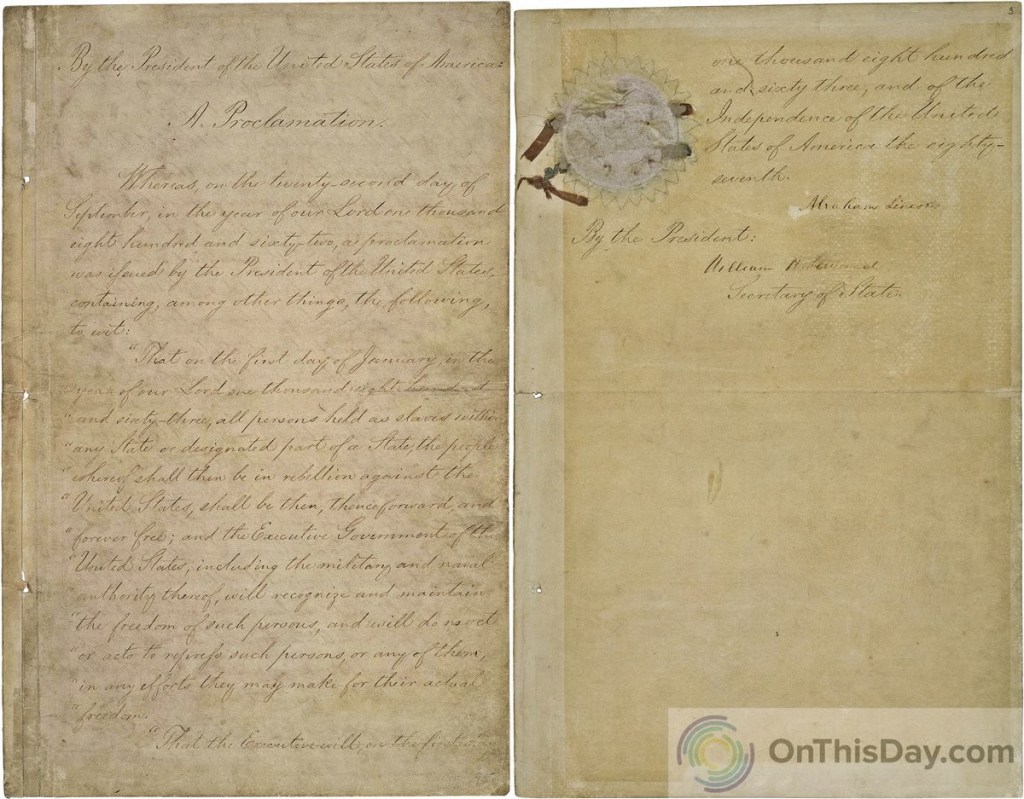 By the President of the United States of America:
A Proclamation.
Whereas, on the twenty-second day of
September, in the year of our Lord one thousand
eight hundred and sixty-two, a proclamation
was issued by the President of the United States,
containing, among other things, the following,
to wit:
"That on the first day of January, in the
"year of our Lord one thousand eight hundred
"and sixty-three, all persons held as slaves within
"any State or designated part of a State, the people
"whereof shall then be in rebellion against the
"United States, shall be then, thenceforward, and
"forever free; and the Executive Government of the
"United States, including the military and naval
"authority thereof, will recognize and maintain
"the freedom of such persons, and will do no act
"or acts to repress such persons, or any of them,
"in any efforts they may make for their actual
"freedom.
"That the Executive will, on the first
3
one thousand eight hundred
and sixty three, and of the
Independence of the United
States of America the eighty-
seventh.
Abraham Lincoln
By the President:
William H. Seward
Secretary of State.
OnThisDay.com